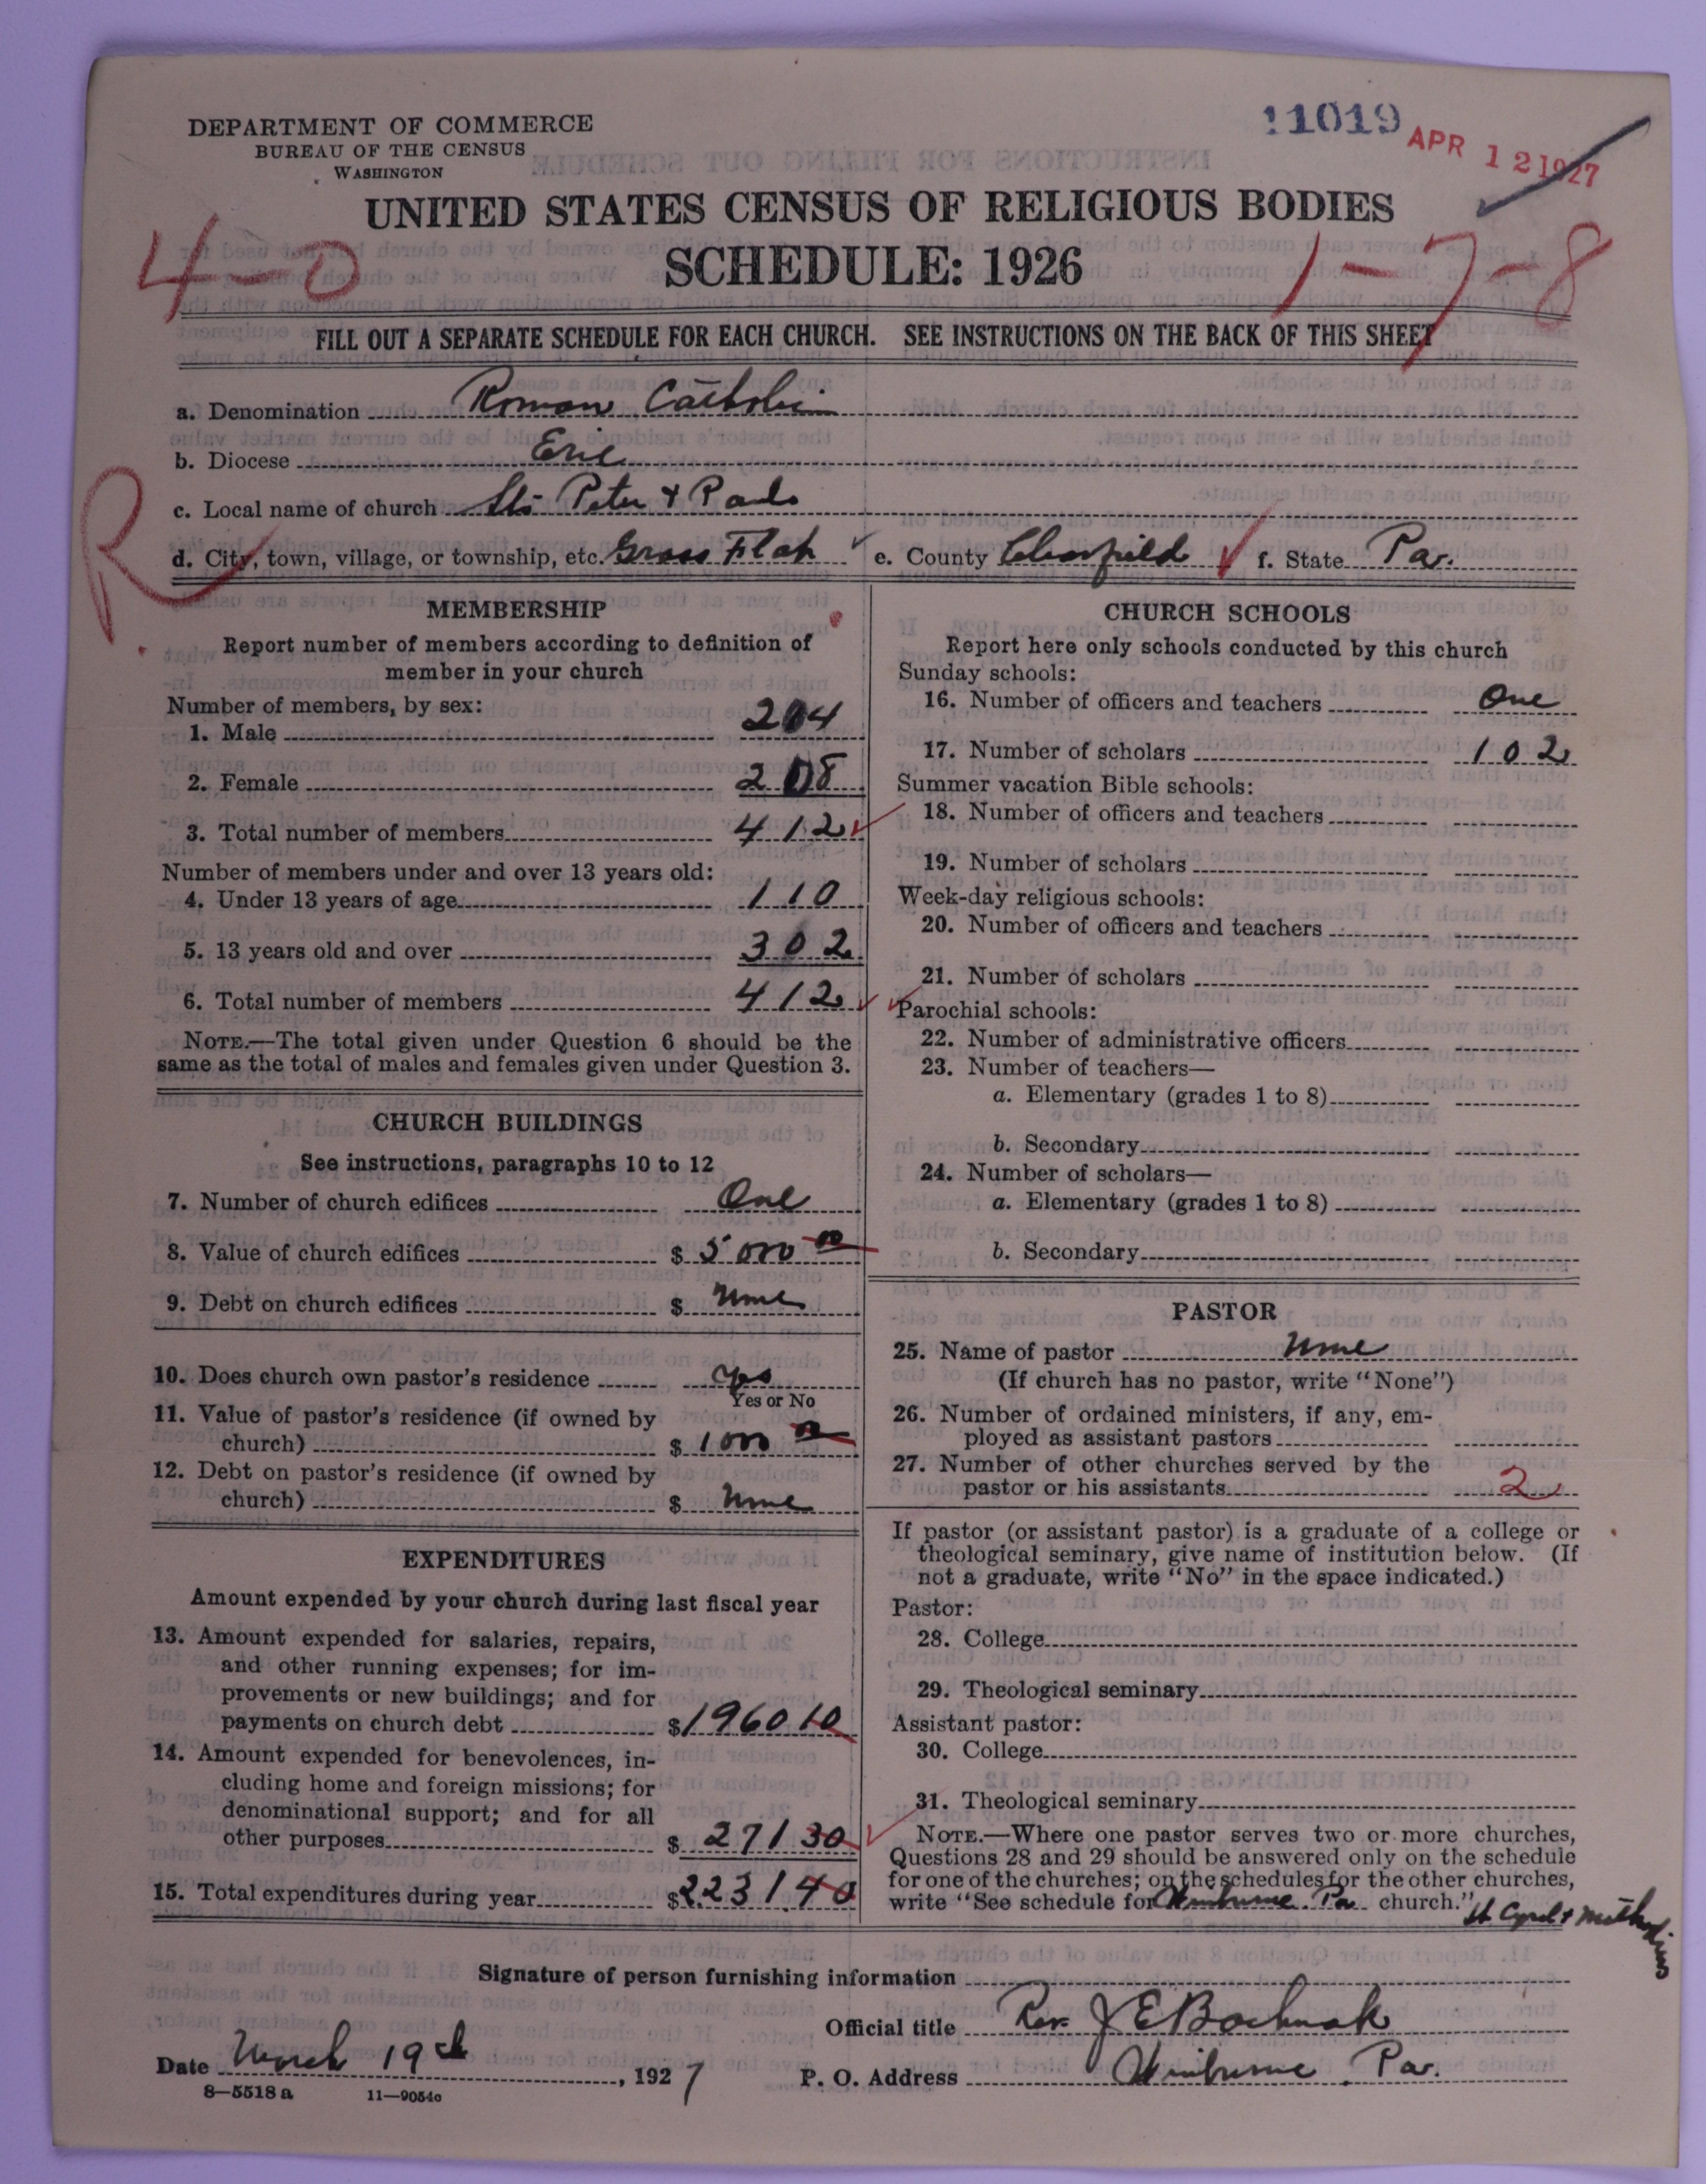 DEPARTMENT OF COMMERCE
BUREAU OF THE CENSUS
WASHINGTON
11019
APR 12 1927
UNITED STATES CENSUS OF RELIGIOUS BODIES
4-0
SCHEDULE: 1926
1-7-8
FILL OUT A SEPARATE SCHEDULE FOR EACH CHURCH. SEE INSTRUCTIONS ON THE BACK OF THIS SHEET
a. Denomination Roman Catholic
b. Diocese Erie
c. Local name of church Sts Peter & Pauls
R
d. City, town, village, or township, etc. Grass Flat e. County Clearfield f. State Pa.
MEMBERSHIP
Report number of members according to definition of
member in your church
Number of members, by sex:
1. Male 204
2. Female 208
3. Total number of members 412
Number of members under and over 13 years old:
4. Under 13 years of age 110
5. 13 years old and over 302
6. Total number of members 412
NOTE.—The total given under Question 6 should be the
same as the total of males and females given under Question 3.
CHURCH BUILDINGS
See instructions, paragraphs 10 to 12
7. Number of church edifices One
8. Value of church edifices $ 5000 00
9. Debt on church edifices $ None
10. Does church own pastor's residence Yes
Yes or No
11. Value of pastor's residence (if owned by
church) $ 1000 00
12. Debt on pastor's residence (if owned by
church) $ None
EXPENDITURES
Amount expended by your church during last fiscal year
13. Amount expended for salaries, repairs,
and other running expenses; for im-
provements or new buildings; and for
payments on church debt $ 1960 10
14. Amount expended for benevolences, in-
cluding home and foreign missions; for
denominational support; and for all
other purposes $ 271 30
15. Total expenditures during year $ 2231 40
CHURCH SCHOOLS
Report here only schools conducted by this church
Sunday schools:
16. Number of officers and teachers One
17. Number of scholars 102
Summer vacation Bible schools:
18. Number of officers and teachers
19. Number of scholars
Week-day religious schools:
20. Number of officers and teachers
21. Number of scholars
Parochial schools:
22. Number of administrative officers
23. Number of teachers—
a. Elementary (grades 1 to 8)
b. Secondary
24. Number of scholars—
a. Elementary (grades 1 to 8)
b. Secondary
PASTOR
25. Name of pastor None
(If church has no pastor, write "None")
26. Number of ordained ministers, if any, em-
ployed as assistant pastors
27. Number of other churches served by the
pastor or his assistants 2
If pastor (or assistant pastor) is a graduate of a college or
theological seminary, give name of institution below. (If
not a graduate, write "No" in the space indicated.)
Pastor:
28. College
29. Theological seminary
Assistant pastor:
30. College
31. Theological seminary
NOTE.—Where one pastor serves two or more churches,
Questions 28 and 29 should be answered only on the schedule
for one of the churches; on the schedules for the other churches,
write "See schedule for Winburne Pa church." St Cyril & Methodius
Signature of person furnishing information
Official title Rev. J E Bochnak
Date March 19th, 1927
P. O. Address Winburne Pa.
8—5518 a 11—9054c